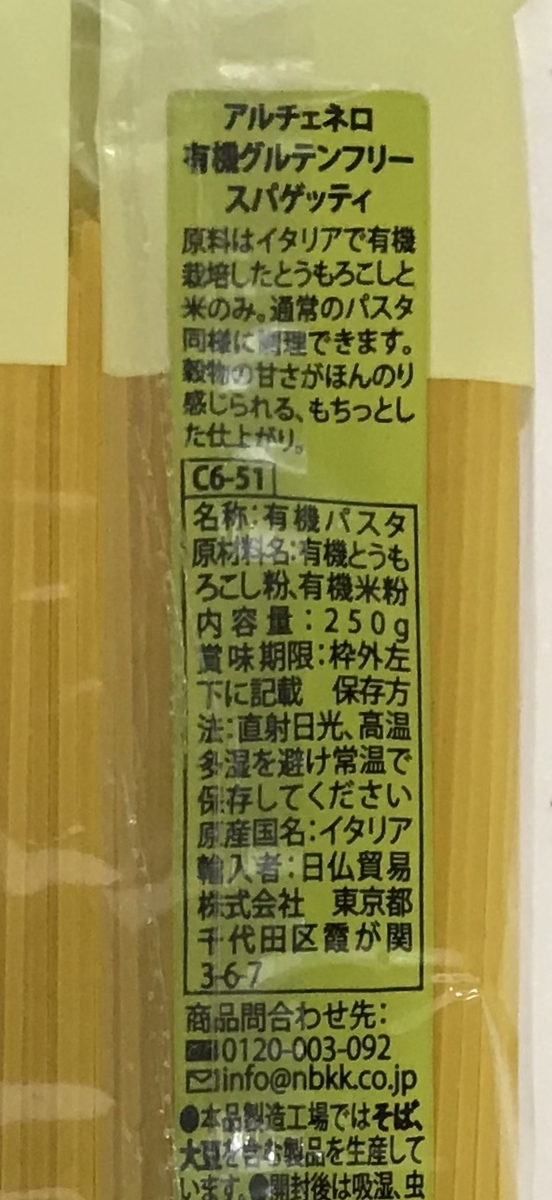 アルチェネロ
有機グルテンフリー
スパゲッティ
原料はイタリアで有機
栽培したとうもろこしと
米のみ。通常のパスタ
同様に調理できます。
穀物の甘さがほんのり
感じられる、もちっとし
た仕上がり。
C6-51
名称:有機パスタ
原材料名:有機とうも
ろこし粉、有機米粉
内容量:250g
賞味期限:枠外左
下に記載 保存方
法:直射日光、高温
多湿を避け常温で
保存してください
原産国名:イタリア
輸入者:日仏貿易
株式会社 東京都
千代田区霞が関
3-6-7
商品問合わせ先:
0120-003-092
info@nbkk.co.jp
●本品製造工場ではそば、
大豆を含む製品を生産して
います。●開封後は吸湿、虫